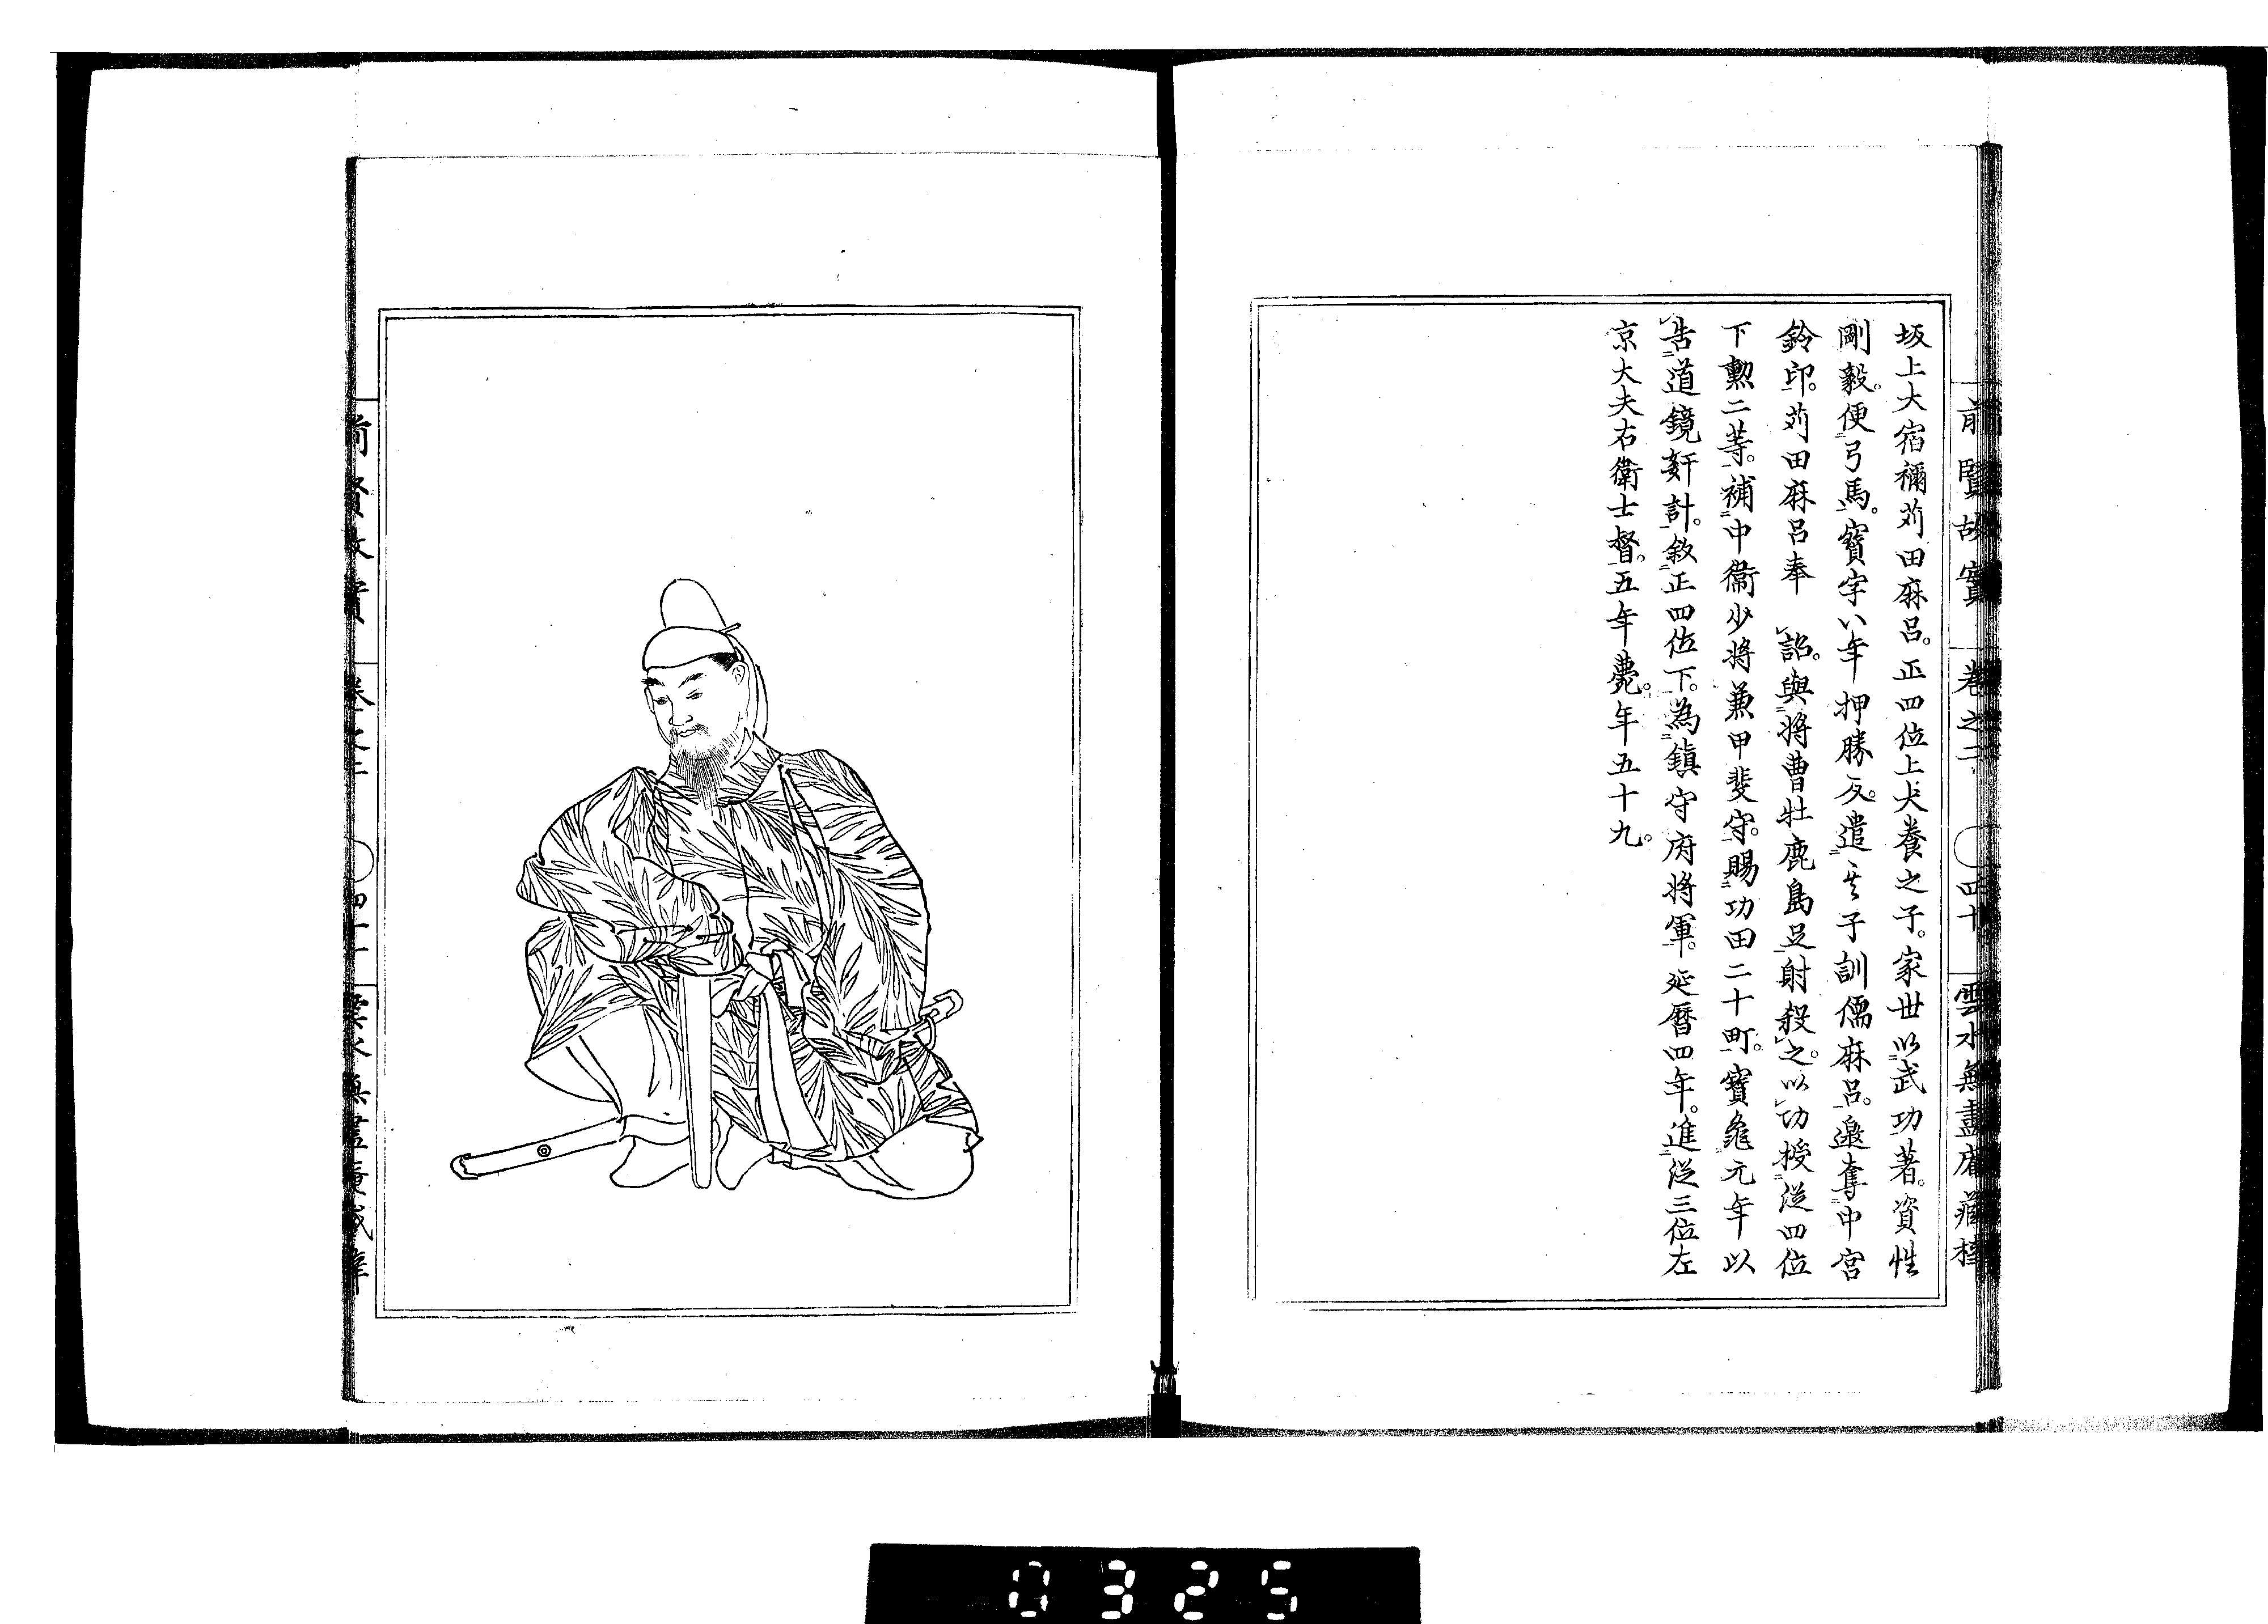 前賢故實 卷之二 四十 雲水無盡庵藏梓
坂上大宿禰苅田麻呂。正四位上犬養之子。家世以武功著。資性
剛毅。便弓馬。寳字八年押勝反。遣其子訓儒麻呂。邀奪中宮
鈴印。苅田麻呂奉 詔。與將曹牡鹿島足射殺之。以功授從四位
下勲二等。補中衞少將兼甲斐守。賜功田二十町。寳龜元年以
告道鏡姧計。敘正四位下。為鎮守府將軍。延暦四年。進從三位左
京大夫右衞士督。五年薨。年五十九。
前賢故實 卷之二 四十一 雲水無盡庵藏梓
0325